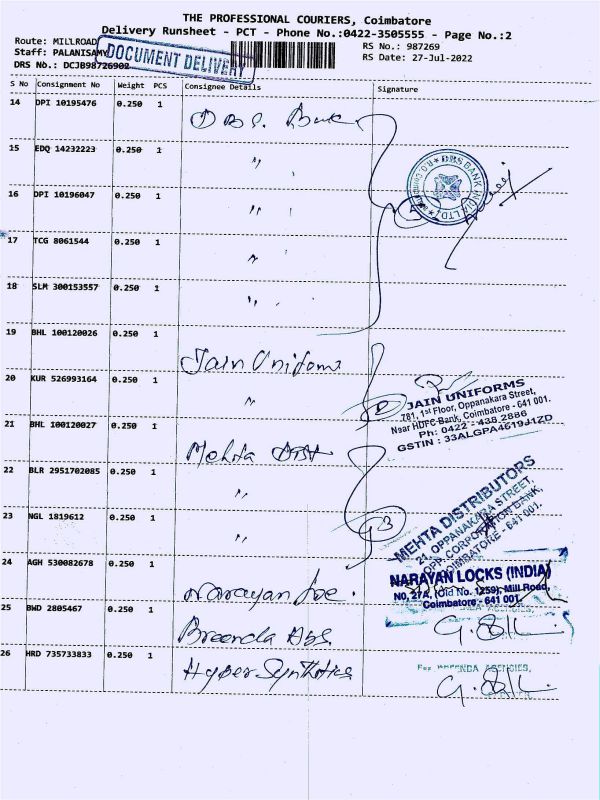 THE PROFESSIONAL COURIERS, Coimbatore
Delivery Runsheet - PCT - Phone No.:0422-3505555 - Page No.:2
Route: MILLROAD
RS No.: 987269
Staff: PALANISAMY
DOCUMENT DELIVERY
RS Date: 27-Jul-2022
DRS No.: DCJB98726902
S No Consignment No Weight PCS Consignee Details Signature
14 DPI 10195476 0.250 1 DBS. Bank
15 EDQ 14232223 0.250 1 "
DBS BANK INDIA LTD
16 DPI 10196047 0.250 1 "
*17 TCG 8061544 0.250 1 "
18 SLM 300153557 0.250 1 "
19 BHL 100120026 0.250 1 Jain Uniforms
20 KUR 526993164 0.250 1 "
JAIN UNIFORMS
781, 1st Floor, Oppanakara Street,
Near HDFC Bank, Coimbatore - 641 001.
Ph: 0422 - 438 2886
GSTIN : 33ALGPA4619J1ZD
21 BHL 100120027 0.250 1 Mehta Dist
22 BLR 2951702085 0.250 1 "
23 NGL 1819612 0.250 1 "
MEHTA DISTRIBUTORS
21, OPPANAKARA STREET,
OPP. CORPORATION BANK,
COIMBATORE - 641 001.
24 AGH 530082678 0.250 1 Narayan
NARAYAN LOCKS (INDIA)
NO, 27A, (Old No. 1259), Mill Road,
Coimbatore - 641 001.
25 BWD 2805467 0.250 1 Breenda
26 HRD 735733833 0.250 1 Hyber Synthetics
For BREENDA AGENCIES,